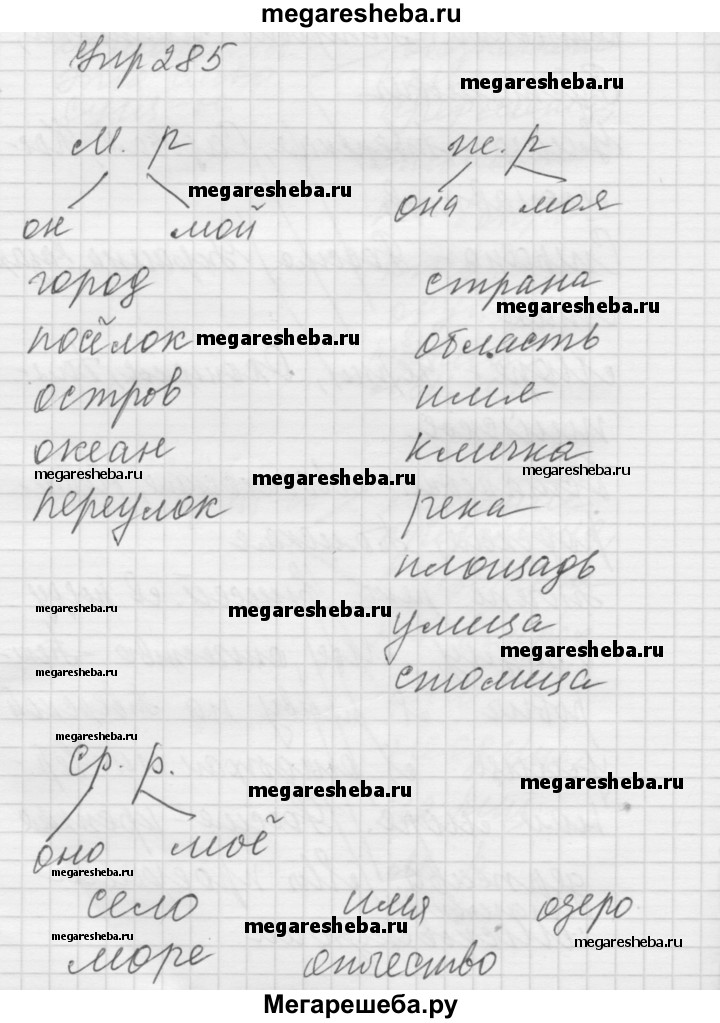 megaresheba.ru
Упр 285
megaresheba.ru
м. р ж. р
megaresheba.ru
он мой она моя
город страна
megaresheba.ru
посёлок megaresheba.ru область
остров имя
океан кличка
megaresheba.ru megaresheba.ru megaresheba.ru
переулок река
площадь
megaresheba.ru megaresheba.ru
улица
megaresheba.ru
megaresheba.ru столица
megaresheba.ru
ср. р.
megaresheba.ru megaresheba.ru
оно моё
megaresheba.ru
село имя озеро
megaresheba.ru
megaresheba.ru megaresheba.ru
море отчество
Мегарешеба.ру